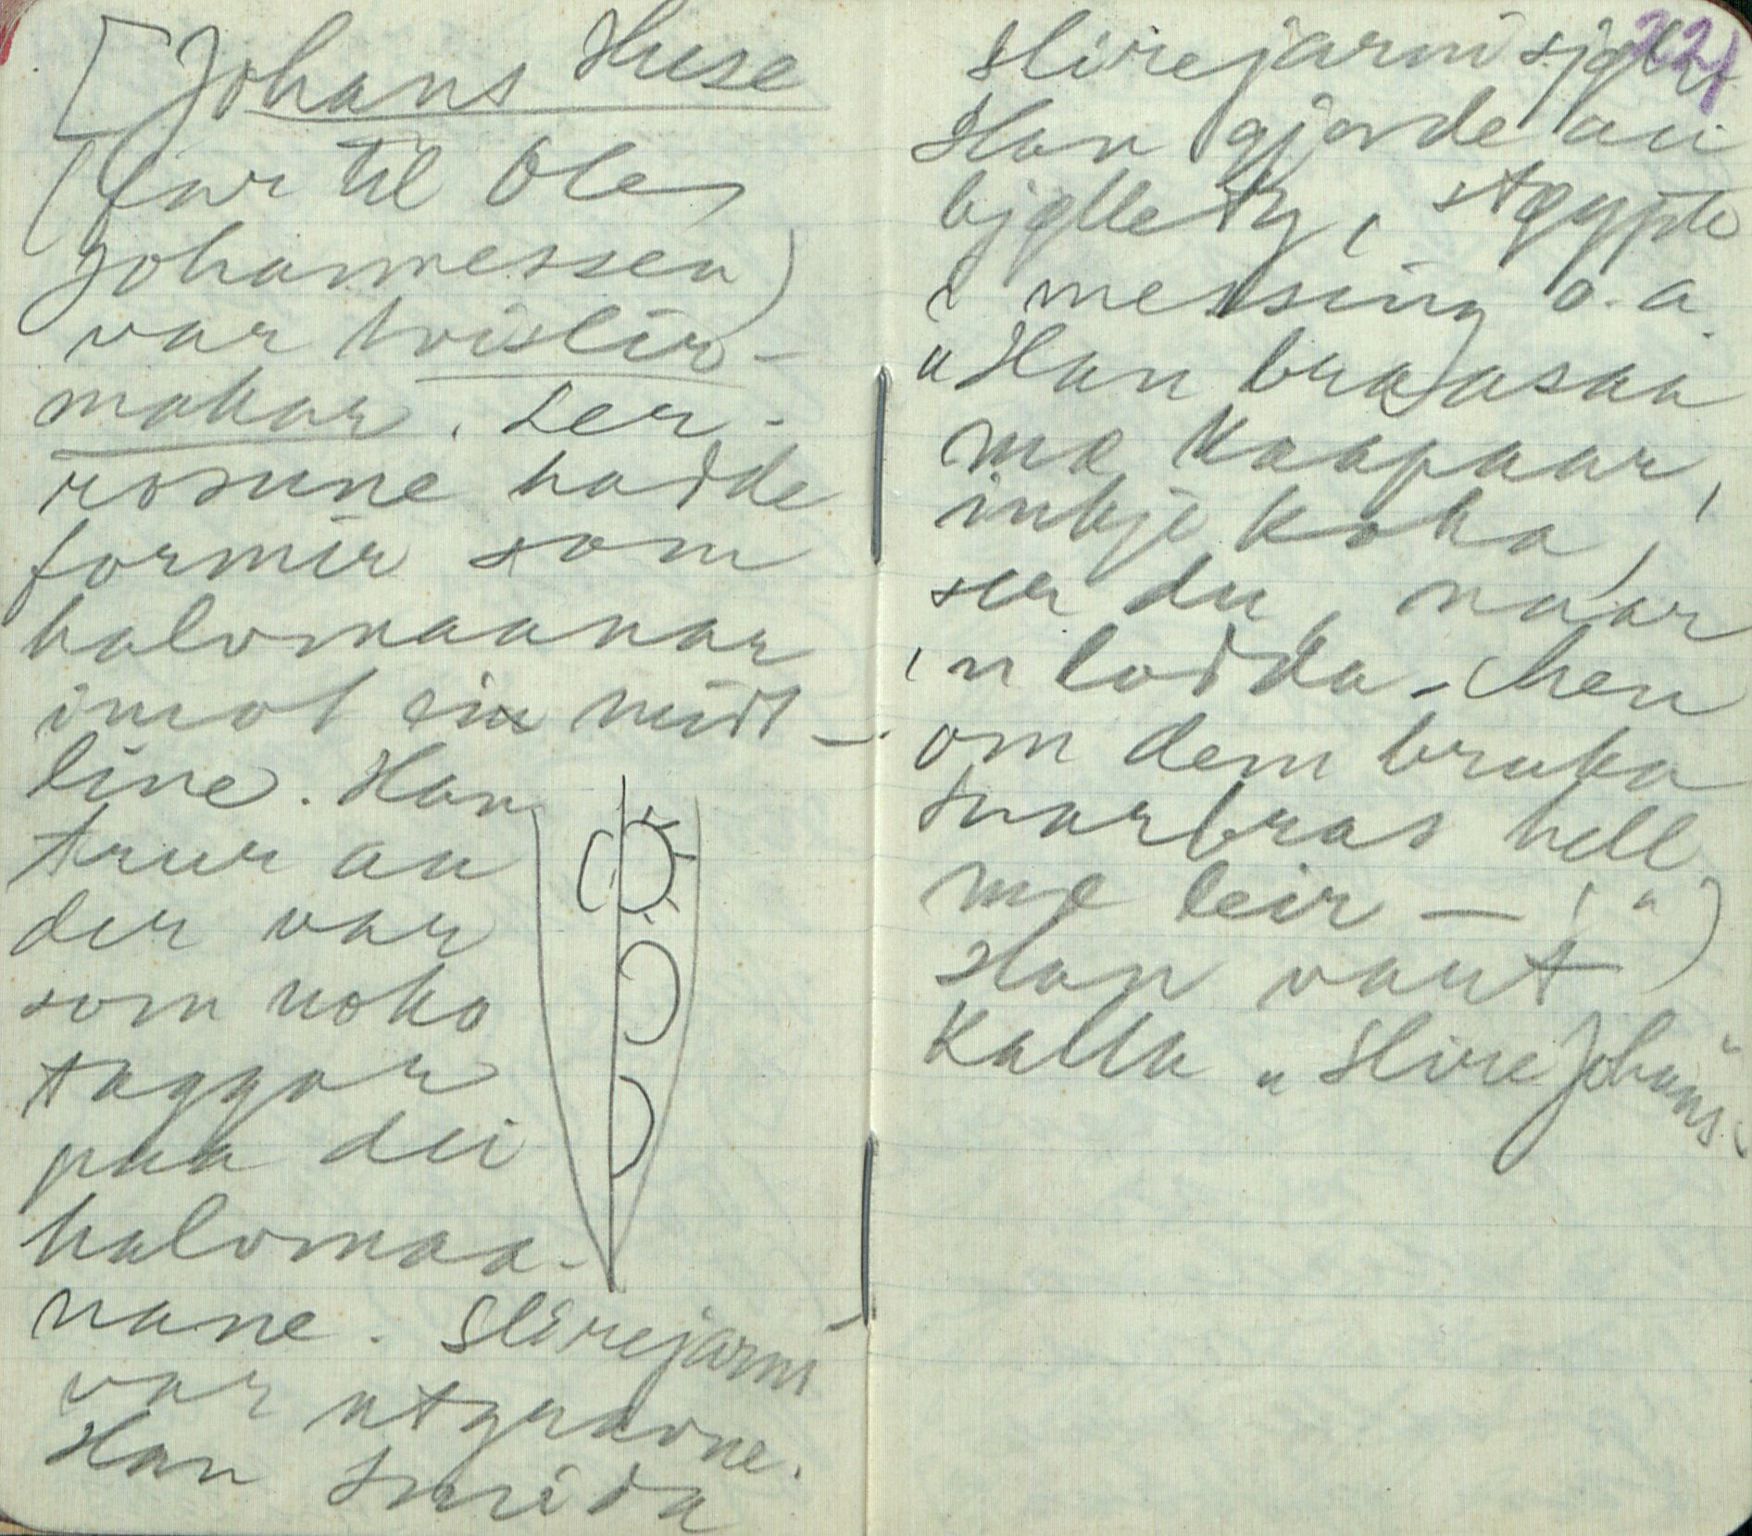 [Johans Huse
(far til Ole
Johannessen)
var tvislir-
makar. Ler-
rosune hadde
formir som
halvmaanar
imot ein midt-
line. Han
trur au
der var
som noko
taggar
paa dei
halvmaa-
nane. Slirejarni
var utgravne.
Han smida
slirejarni sjølv
Han gjorde au
bjøllety, støypte
i messing o.a.
"Han bra'asaa
mæ kaapaar,
inkje koka,
ser du, naar
'n lodda. Men
om dem bruka
snarbras hell
mæ leir — !")
Han vart
kalla "Slire Johans".
22)